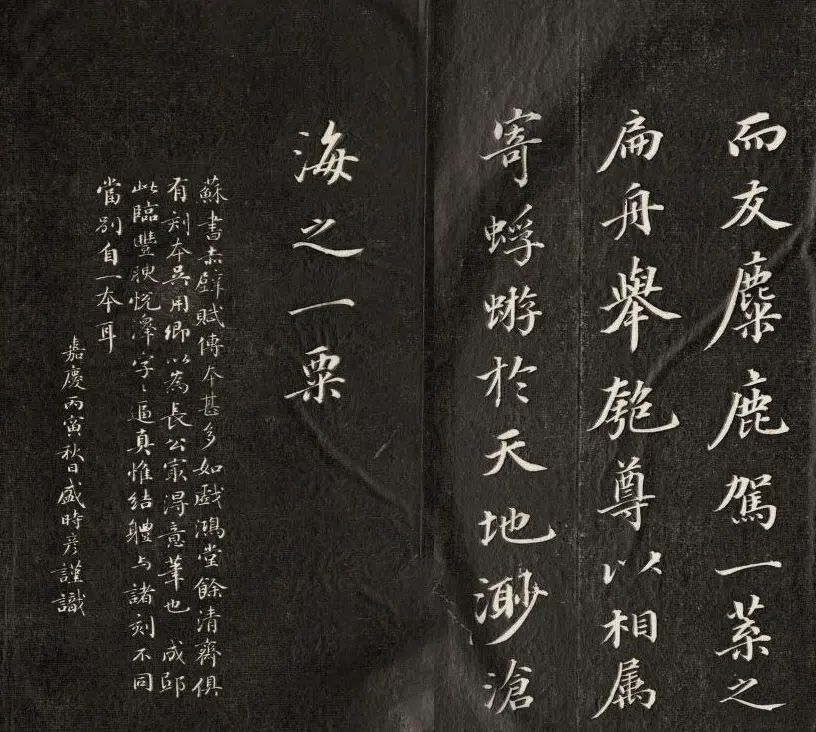 而友麋鹿駕一葉之
扁舟舉匏尊以相属
寄蜉蝣於天地渺滄
海之一粟
蘇書赤壁賦傳本甚多如戲鴻堂餘清齋俱
有刻本吳用卿以為長公最得意筆也 成邸
此臨豐腴悅澤字〻逼真惟結體与諸刻不同
當別自一本耳
嘉慶丙寅秋日盛時彦謹識